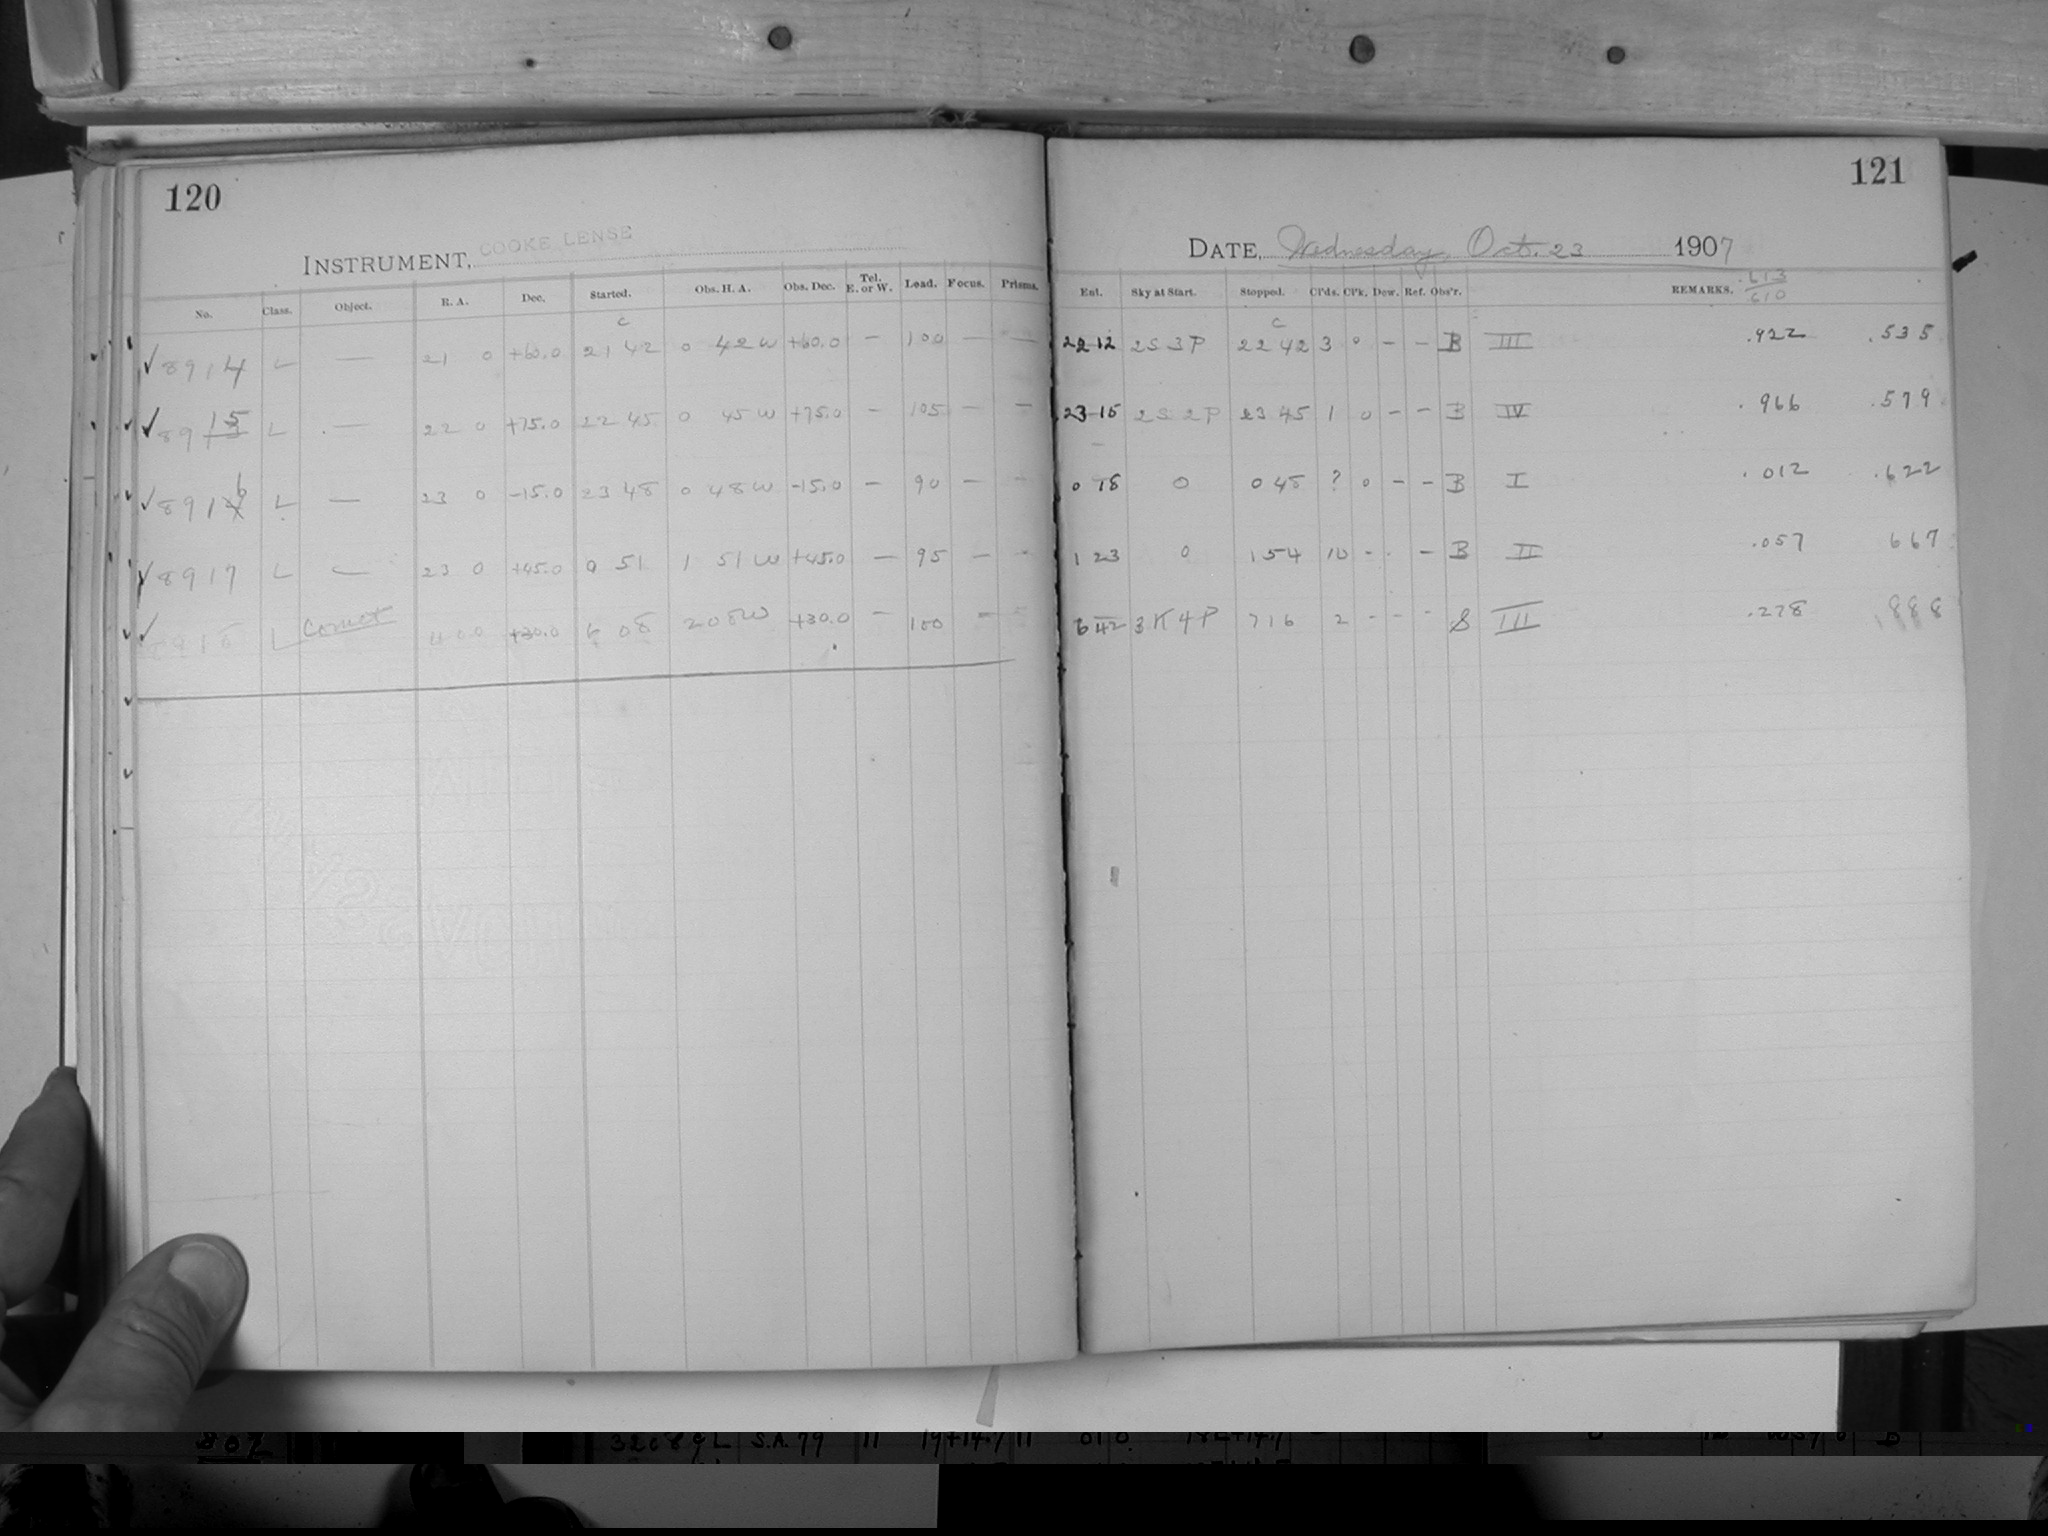 120
INSTRUMENT, COOKE LENSE
No. Class. Object. R. A. Dec. Started. Obs. H. A. Obs. Dec. Tel. E. or W. Lead. Focus. Prisms.
c
8914 L — 21 0 +60.0 21 42 0 42 W +60.0 — 100 — —
8915 L — 22 0 +75.0 22 45 0 45 W +75.0 — 105 — —
8916 L — 23 0 -15.0 23 48 0 48 W -15.0 — 90 — -
8917 L — 23 0 +45.0 0 51 1 51 W +45.0 — 95 — -
L Comet 4 00 +30.0 6 08 2 08 W +30.0 — 100 —
121
DATE, Wednesday, Oct. 23 1907
.613
610
Ent. Sky at Start. Stopped. Cl'ds. Cl'k. Dew. Ref. Obs'r. REMARKS.
c
22 12 2S 3P 22 42 3 0 - - B III .922 .535
23 15 2S 2P 23 45 1 0 - - B IV .966 .579
0 18 0 0 48 ? 0 - - B I .012 .622
1 23 0 1 54 10 - - - B II .057 667
6 42 3K4P 7 16 2 - - - S III .278 .888
32089 L S.A. 79 11